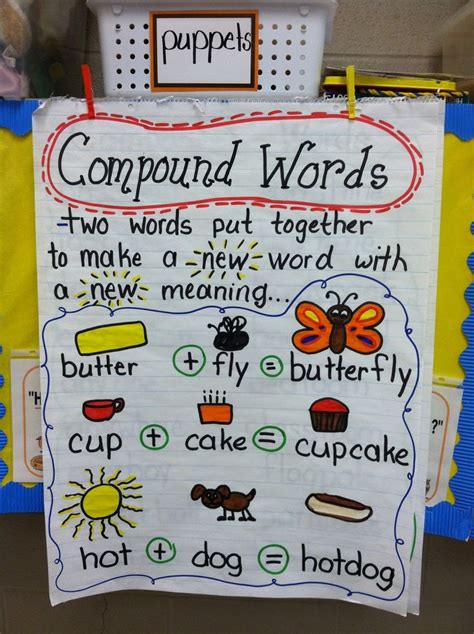 puppets
Compound Words
-two words put together
to make a new word with
a new meaning...
butter + fly = butterfly
cup + cake = cupcake
hot + dog = hotdog
"H
?"